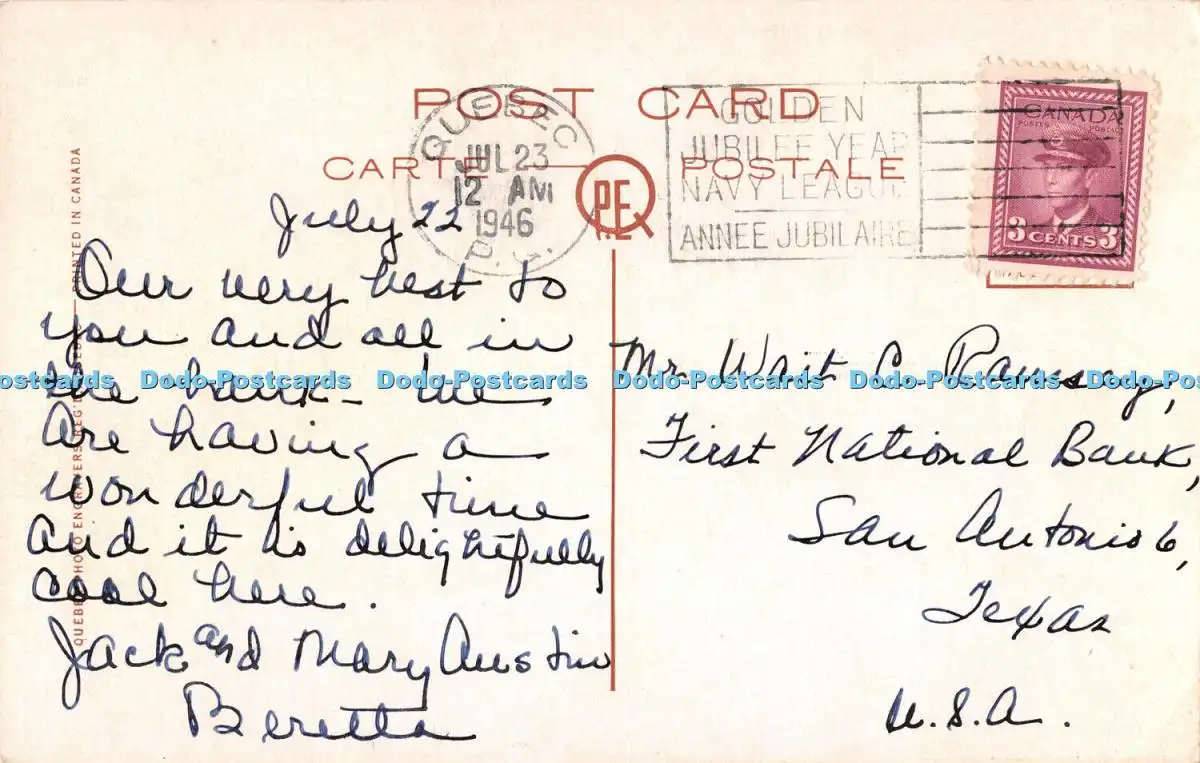 POST CARD
CARTE POSTALE
P.E.Q
QUEBEC
JUL 23
12 AM
1946
P.Q.
GOLDEN
JUBILEE YEAR
NAVY LEAGUE
ANNEE JUBILAIRE
CANADA
POSTES POSTAGE
3 CENTS 3
July 22
Our very best to
you and all in
the bank - We
are having a
wonderful time
and it is delightfully
cool here.
Jack and Mary Austin
Beretta
Mr. Wait C Ramsay,
First National Bank,
San Antonio 6,
Texas
U.S.A.
PRINTED IN CANADA
Dodo-Postcards Dodo-Postcards Dodo-Postcards Dodo-Postcards Dodo-Postcards